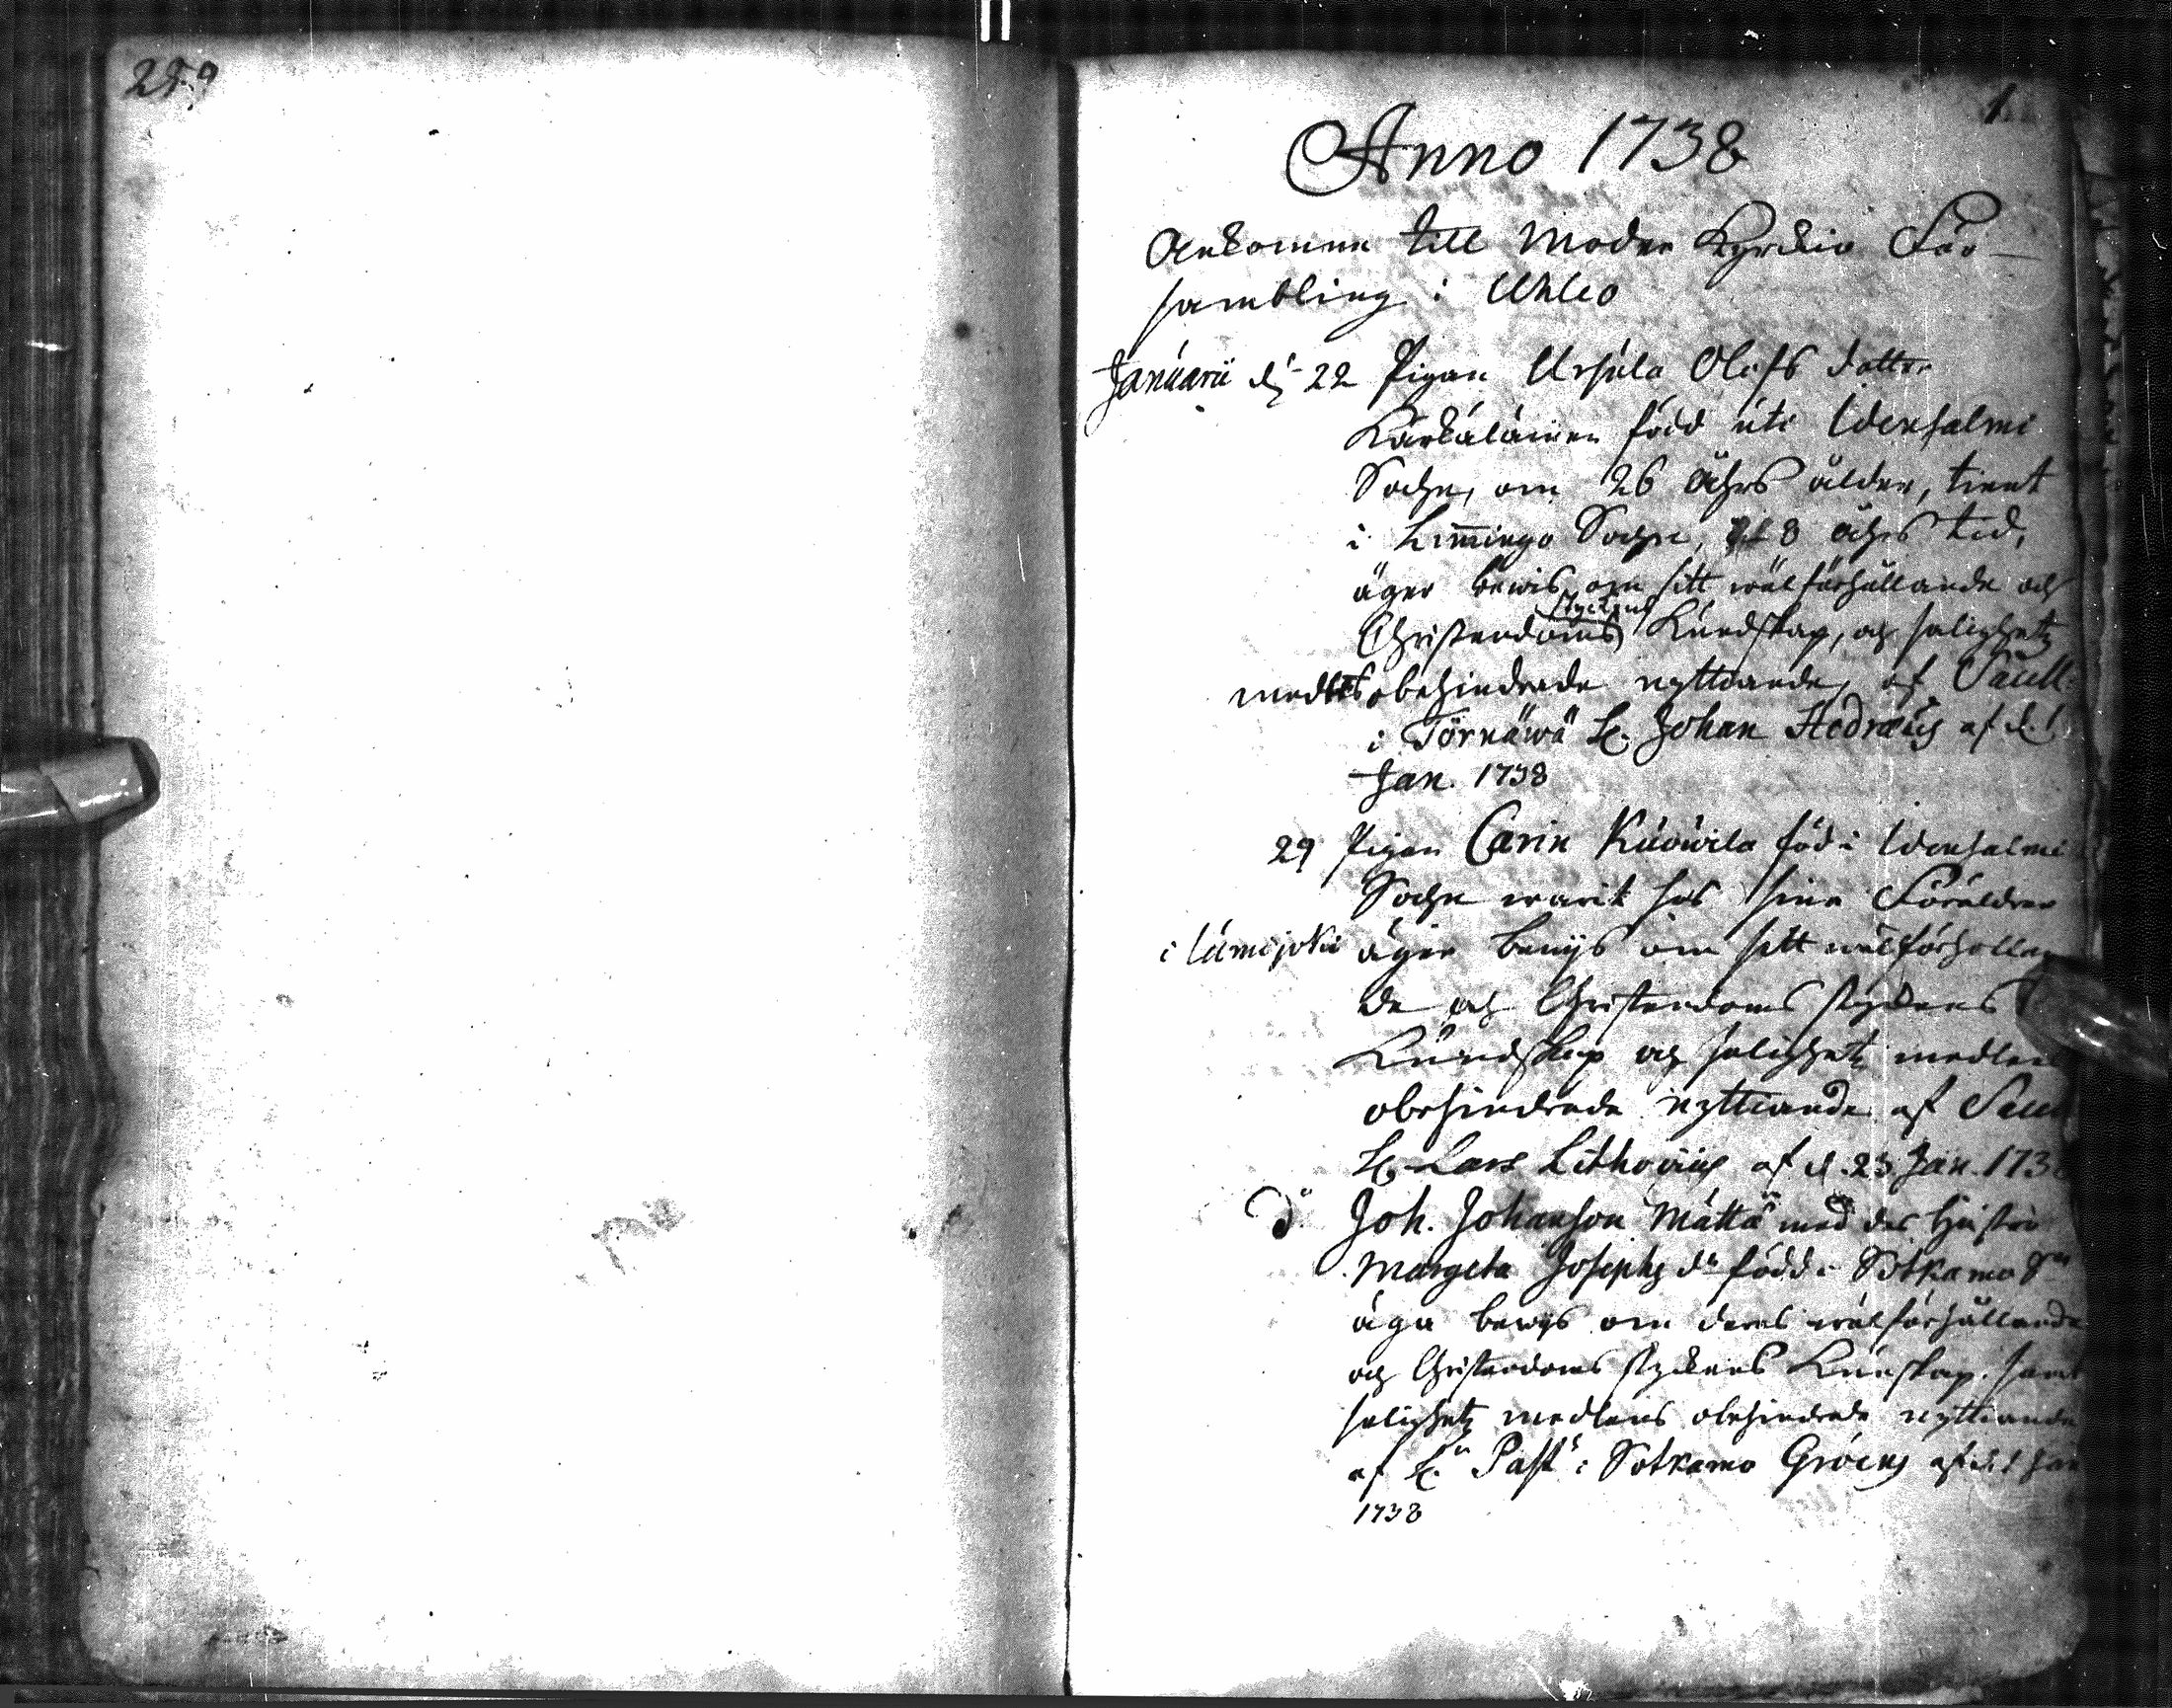 259
1
Anno 1738
Ankomne till Moder Kyrkio För-
sambling i Uhleo
Januarii d. 22 Pigan Ursula Olofs dotter
Kärkäläinen född uti Idensalmi
Sochn, om 26 åhrs ålder, tient
i Limingo Sochn, 8 åhrs tid,
äger bewis om sitt wälförhållande och
styckens
Christendoms Kundskap, och salighetz
medlens obehindrade nyttiande, af Sacell:
i Törnäwä H. Johan Hedræus af d. 1
Jan. 1738
29 Pigan Carin Kuowila föd i Idensalmi
Sochn warit hos sina Föräldrar
i Lumijoki äger bewijs om sitt wälförhollan
de och Christendoms styckens
Kundskap och salighetz medlens
obehindrade nyttiande af Sacell
H. Lars Lithovius af d. 23 Jan. 1738
d.o Joh. Johansson Mättä med des hustro
Margeta Josephs dr född i Sotkamo Sn
äga bewijs om deras wälförhållande
och Christendoms styckens Kunskap samt
salighetz medlens obehindrade nyttiande
af H. Past. i Sotkamo Gröen af d. 1 Jan
1738